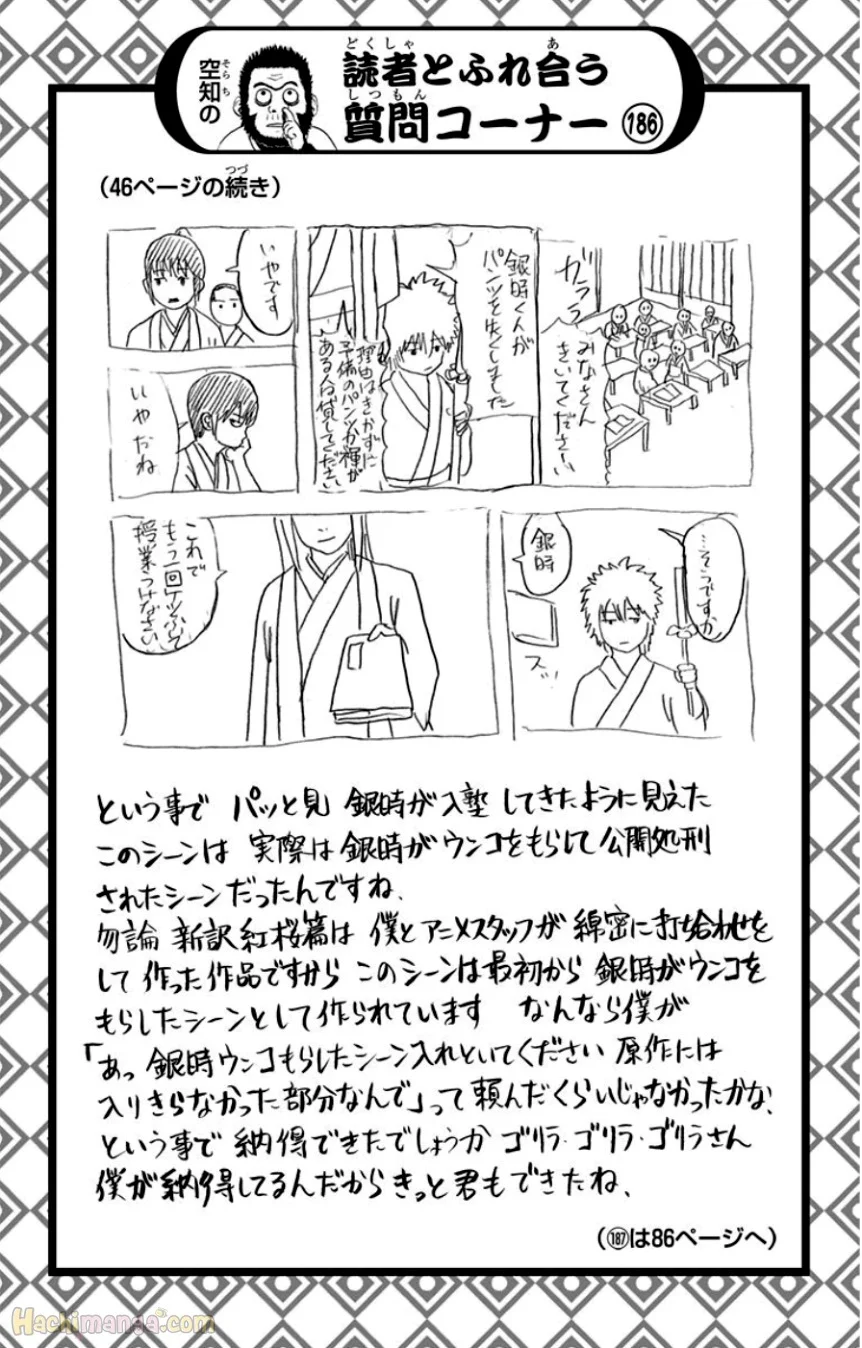 空知の
読者とふれ合う
質問コーナー 186
(46ページの続き)
ガララ
みなさん
きいてください
銀時くんが
パンツを失くしました
理由はきかずに
予備のパンツか褌が
ある人は貸してください
いやです
いやだね
…そうですか
銀時
ズッ
これで
もう一回ケツふいて
授業うけなさい
という事で パッと見 銀時が入塾 してきたように見えた
このシーンは 実際は銀時がウンコをもらして公開処刑
されたシーンだったんですね、
勿論 新訳紅桜篇は 僕とアニメスタッフが 綿密に打ち合わせを
して 作った作品ですから このシーンは最初から 銀時がウンコを
もらしたシーンとして作られています なんなら僕が
「あっ 銀時ウンコもらしたシーン入れといてください 原作には
入りきらなかった部分なんで」って頼んだくらいじゃなかったかな、
という事で 納得できたでしょうか ゴリラ・ゴリラ・ゴリラさん
僕が納得してるんだからきっと君もできたね、
(187は86ページへ)
Hachimanga.com